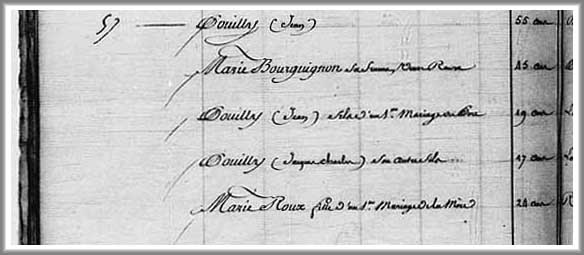 57 Douilly (Jean) 55 ans
Marie Bourguignon sa femme, 45 ans
Douilly (Jean) fils d'un 1er Mariage du Père 19 ans
Douilly (Jacque Charles) son autre fils 17 ans
Marie Roux fille d'un 1er Mariage de la Mère 24 ans